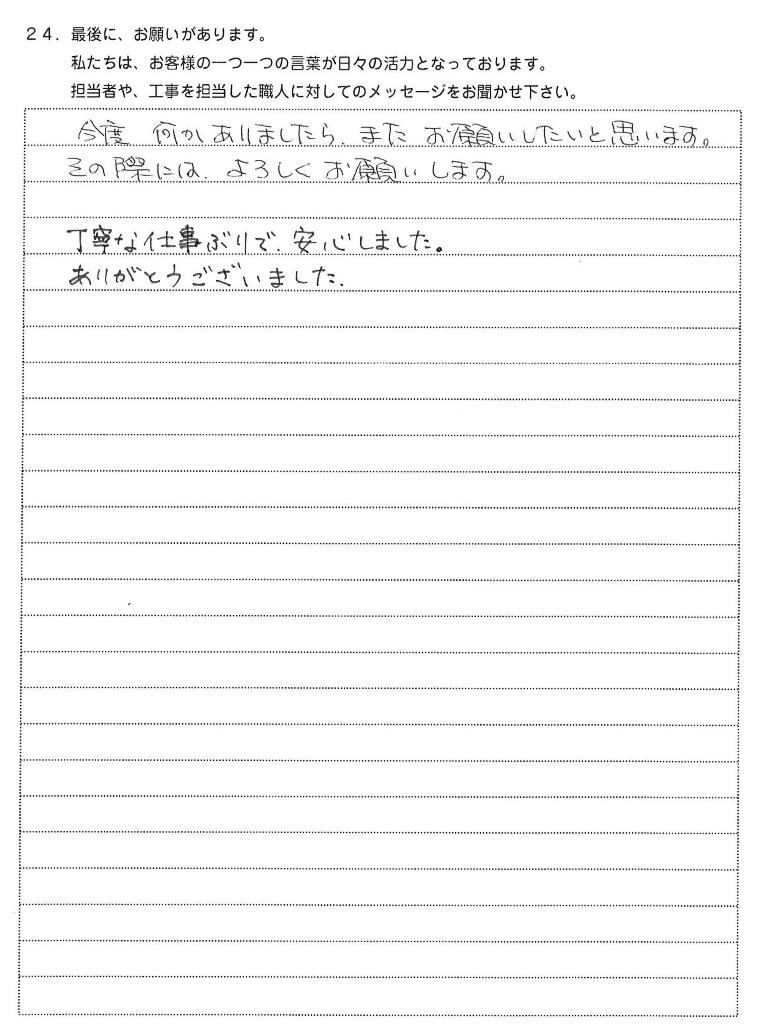 ２４．最後に、お願いがあります。
私たちは、お客様の一つ一つの言葉が日々の活力となっております。
担当者や、工事を担当した職人に対してのメッセージをお聞かせ下さい。
今度 何かありましたら、また お願いしたいと思います。
その際には、よろしく お願いします。
丁寧な仕事ぶりで、安心しました。
ありがとうございました.